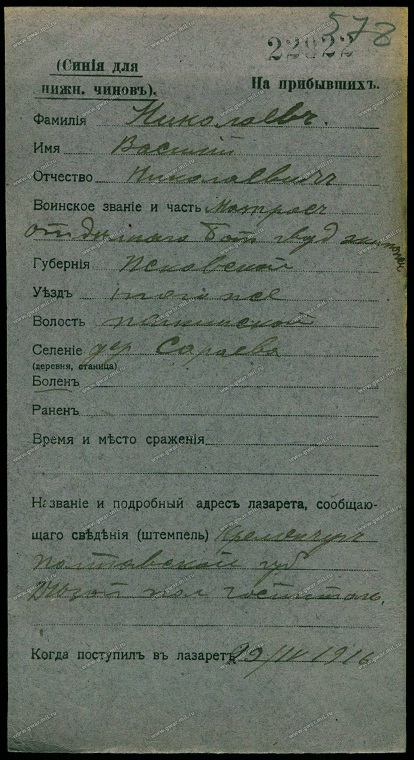 578
22022
(Синія для
нижн. чиновъ).
На прибывшихъ.
Фамилія Николаевъ.
Имя Василій
Отчество Николаевичъ
Воинское званіе и часть Матросъ
Губернія Псковской
Уѣздъ того же
Волость
Селеніе дер Сараева
(деревня, станица)
Боленъ
Раненъ
Время и мѣсто сраженія
Названіе и подробный адресъ лазарета, сообщаю-
щаго свѣдѣнія (штемпель) Кременчугъ
Полтавской губ
пол госпиталь.
Когда поступилъ въ лазаретъ 29/IV 1916